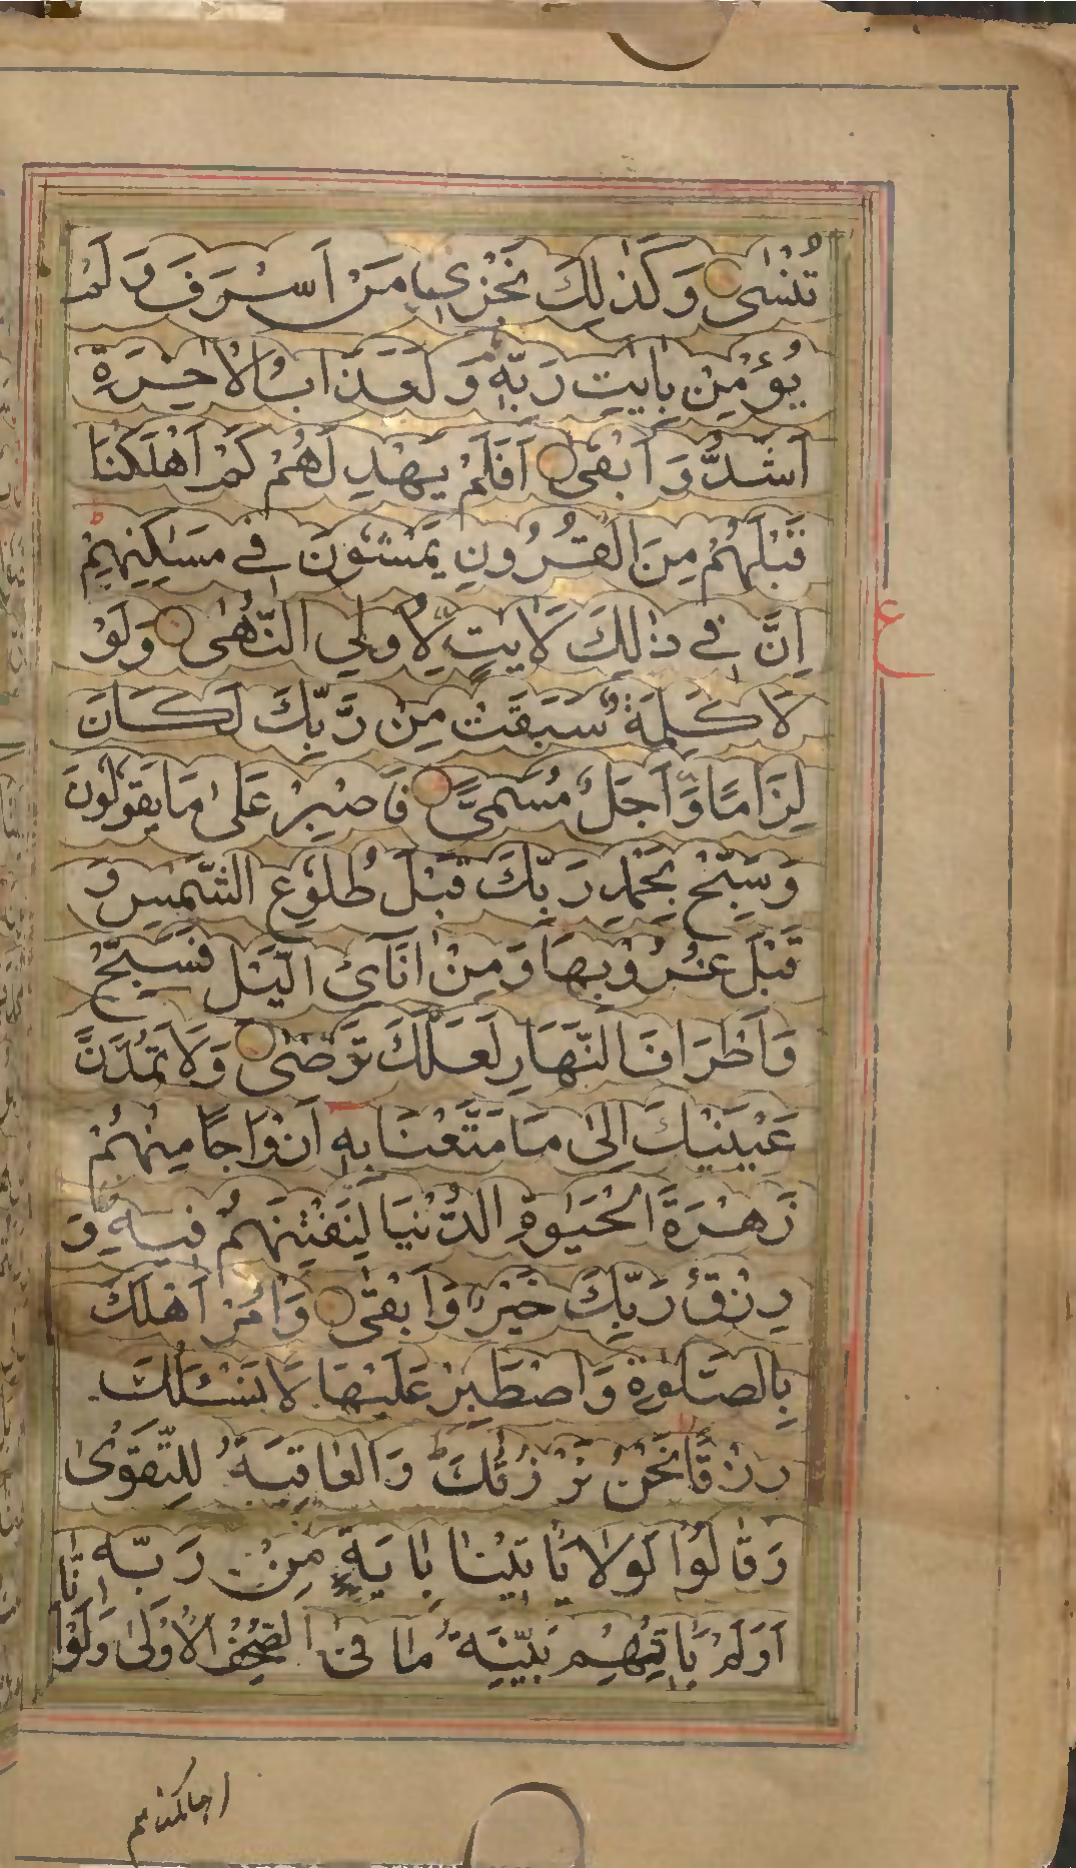 تُنْسٰى وَكَذٰلِكَ نَجْزِىْ مَنْ اَسْرَفَ وَلَمْ
يُؤْمِنْۢ بِاٰيٰتِ رَبِّهٖ وَلَعَذَابُ الْاٰخِرَةِ
اَشَدُّ وَاَبْقٰى اَفَلَمْ يَهْدِ لَهُمْ كَمْ اَهْلَكْنَا
قَبْلَهُمْ مِنَ الْقُرُوْنِ يَمْشُوْنَ فِيْ مَسٰكِنِهِمْ ط
اِنَّ فِيْ ذٰلِكَ لَاٰيٰتٍ لِّاُولِي النُّهٰى وَلَوْ
لَا كَلِمَةٌ سَبَقَتْ مِنْ رَّبِّكَ لَكَانَ
لِزَامًا وَّاَجَلٌ مُسَمًّى فَاصْبِرْ عَلٰى مَا يَقُوْلُوْنَ
وَسَبِّحْ بِحَمْدِ رَبِّكَ قَبْلَ طُلُوْعِ الشَّمْسِ وَ
قَبْلَ غُرُوْبِهَا وَمِنْ اٰنَآئِ الَّيْلِ فَسَبِّحْ
وَاَطْرَافَ النَّهَارِ لَعَلَّكَ تَرْضٰى وَلَا تَمُدَّنَّ
عَيْنَيْكَ اِلٰى مَا مَتَّعْنَا بِهٖ اَزْوَاجًا مِنْهُمْ
زَهْرَةَ الْحَيٰوةِ الدُّنْيَا لِنَفْتِنَهُمْ فِيْهِ وَ
رِزْقُ رَبِّكَ خَيْرٌ وَاَبْقٰى وَاْمُرْ اَهْلَكَ
بِالصَّلٰوةِ وَاصْطَبِرْ عَلَيْهَا لَا نَسْئَلُكَ
رِزْقًا نَحْنُ نَرْزُقُكَ ط وَالْعَاقِبَةُ لِلتَّقْوٰى
وَقَالُوْا لَوْلَا يَاْتِيْنَا بِاٰيَةٍ مِنْ رَبِّهٖ
اَوَلَمْ تَاْتِهِمْ بَيِّنَةُ مَا فِى الصُّحُفِ الْاُوْلٰى وَلَوْ اَنَّا
ع
اهلكنهم